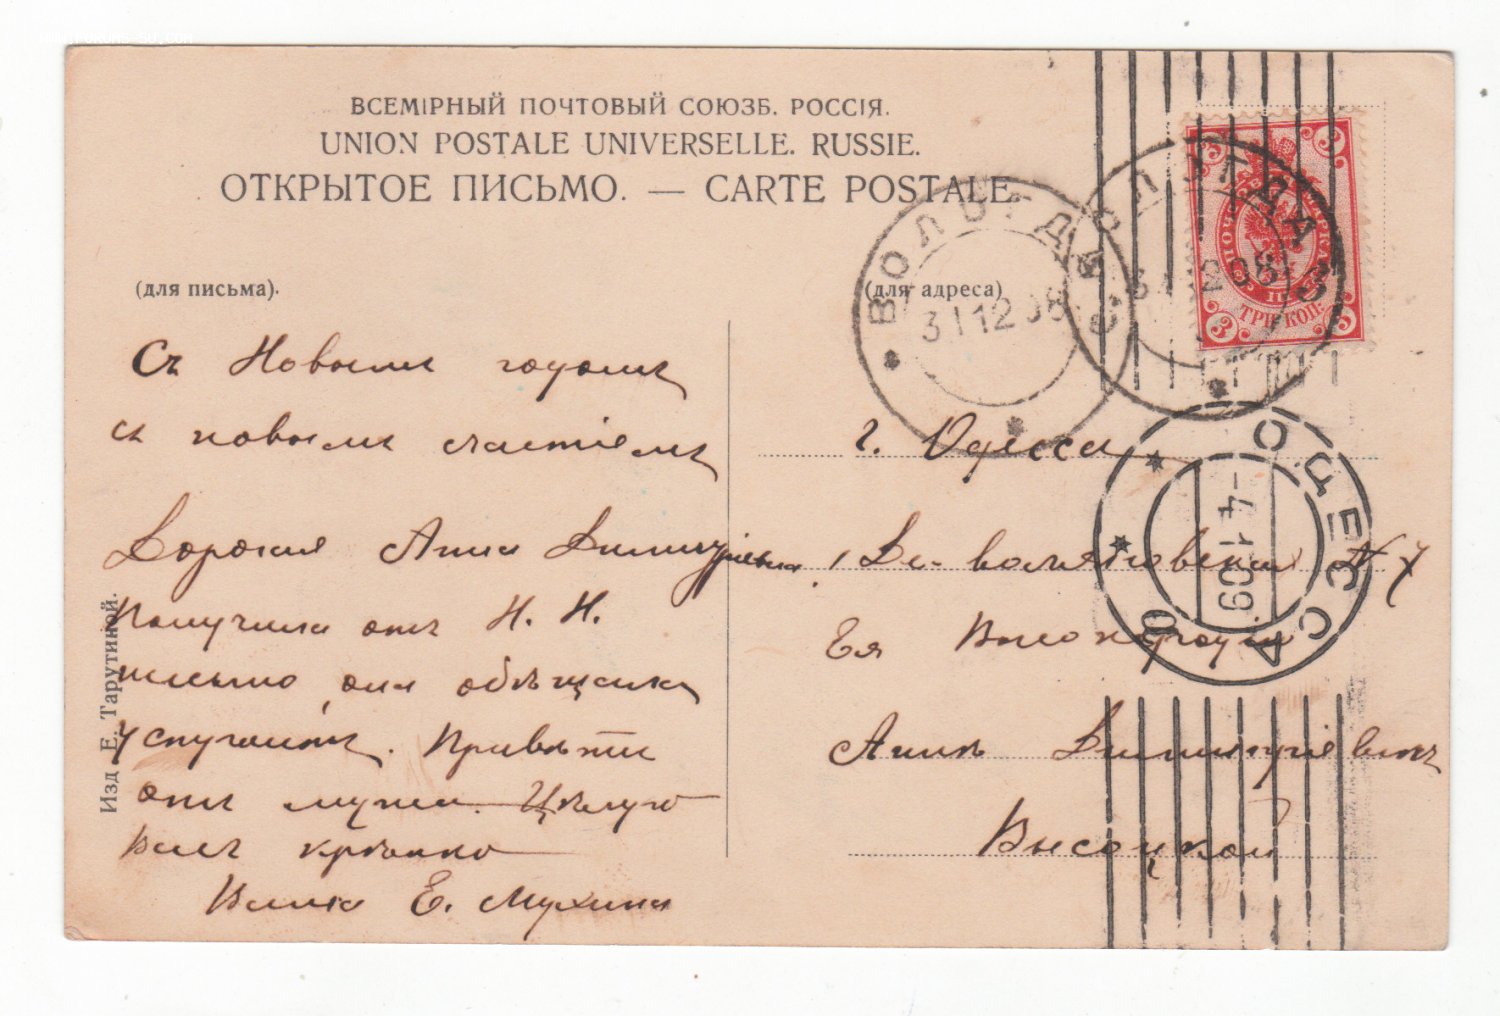 ВСЕМІРНЫЙ ПОЧТОВЫЙ СОЮЗЪ. РОССІЯ.
UNION POSTALE UNIVERSELLE. RUSSIE.
ОТКРЫТОЕ ПИСЬМО. — CARTE POSTALE.
(для письма).
(для адреса)
Съ Новымъ годомъ
съ новымъ счастіемъ
Дорогая Анна Димитріевна!
Получила отъ Н. Н.
письмо, она обѣщала
Привѣтъ
отъ мужа. Цѣлую
Васъ крѣпко
Ваша Е. Мухина
Изд. Е. Тарутиной.
г. Одесса
№ 7
Ея Высокородію
Аннѣ Димитріевнѣ
Высоцкой
ВОЛОГДА
31 12 08
ВОЛОГДА
ТРИ КОП.
3 3 3 3
ОДЕССА
-4 1 09